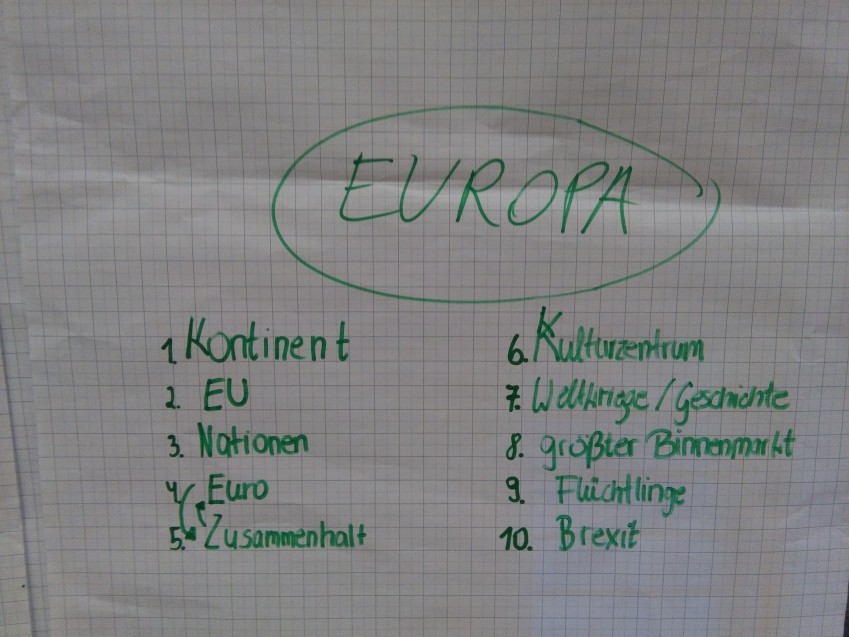 EUROPA
1. Kontinent
2. EU
3. Nationen
4. Euro
5. Zusammenhalt
6. Kulturzentrum
7. Weltkriege / Geschichte
8. größter Binnenmarkt
9. Flüchtlinge
10. Brexit